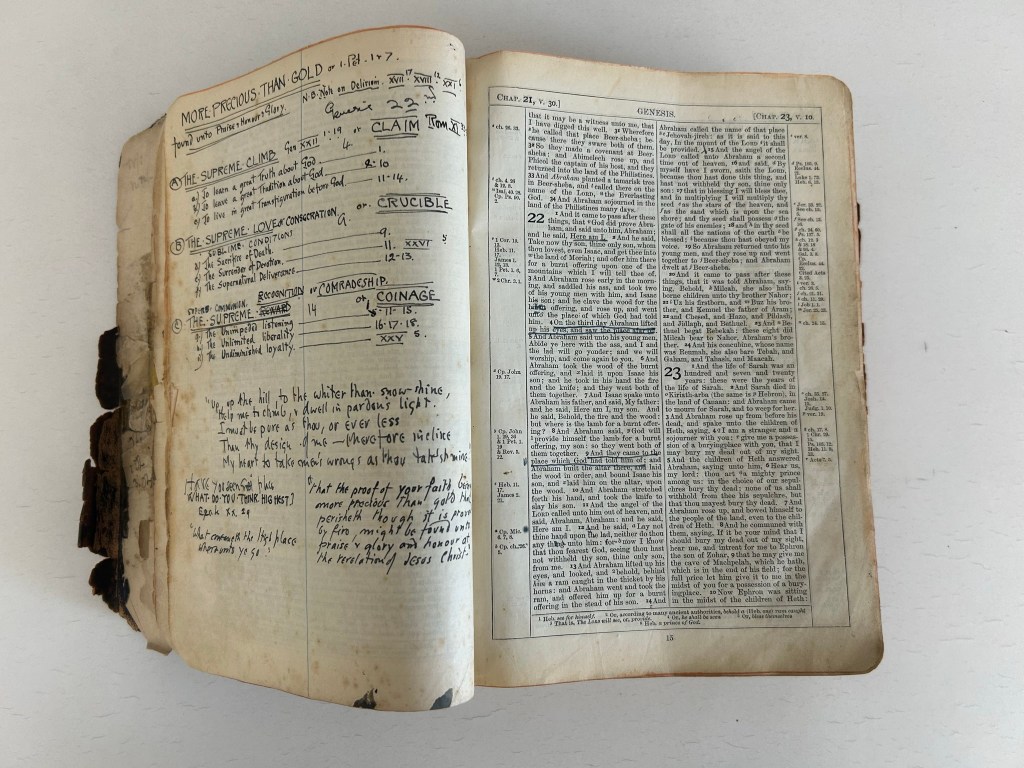 MORE PRECIOUS THAN GOLD or 1. Pet. 1 v 7.
found unto Praise & Honour & Glory.
N.B. Note on Delirium. XVII. XVIII. XXI
Genesis 22
Gen XXII 1-19 or CLAIM Rom XI
A THE SUPREME CLIMB
a) To learn a great Truth about God 1.
b) To leave a great Tradition about God 2-10
c) To live in great Transfiguration before God 11-14.
B THE SUPREME LOVE or CONSECRATION or CRUCIBLE
SUBLIME CONDITIONS
a) The Sacrifice of Death 9.
b) The Surrender of Devotion 11. XXVI 5
c) The Supernatural Deliverance 12-13.
RECOGNITION or COMRADESHIP.
C THE SUPREME 14 or COINAGE
a) The Unimpeded listening 11-15.
b) The Unlimited liberality 16-17-18.
c) The Undiminished loyalty. XXV 5.
"Up, up the hill, to the whiter than snow-shine,
Help me to climb, & dwell in pardon's light.
I must be pure as thou, or ever less
Than thy design of me — therefore incline
My heart to take men's wrongs as thou tak'st mine
WHAT DO YOU THINK HIGHEST]
Ezek XX. 29
"What meaneth the high place
whereunto ye go"
"That the proof of your faith, being
more precious than gold that
perisheth though it is proved
by fire, might be found unto
praise & glory and honour at
the revelation of Jesus Christ"
CHAP. 21, V. 30.] GENESIS. [CHAP. 23, V. 10.
that it may be a witness unto me, that
I have digged this well. 31 Wherefore
he called that place Beer-sheba; be-
cause there they sware both of them.
32 So they made a covenant at Beer-
sheba: and Abimelech rose up, and
Phicol the captain of his host, and they
returned into the land of the Philistines.
33 And Abraham planted a tamarisk tree
in Beer-sheba, and called there on the
name of the LORD, the Everlasting
God. 34 And Abraham sojourned in the
land of the Philistines many days.
22 1 And it came to pass after these
things, that God did prove Abra-
ham, and said unto him, Abraham;
and he said, Here am I. 2 And he said,
Take now thy son, thine only son, whom
thou lovest, even Isaac, and get thee into
the land of Moriah; and offer him there
for a burnt offering upon one of the
mountains which I will tell thee of.
3 And Abraham rose early in the morn-
ing, and saddled his ass, and took two
of his young men with him, and Isaac
his son; and he clave the wood for the
burnt offering, and rose up, and went
unto the place of which God had told
him. 4 On the third day Abraham lifted
up his eyes, and saw the place afar off.
5 And Abraham said unto his young men,
Abide ye here with the ass, and I and
the lad will go yonder; and we will
worship, and come again to you. 6 And
Abraham took the wood of the burnt
offering, and laid it upon Isaac his
son; and he took in his hand the fire
and the knife; and they went both of
them together. 7 And Isaac spake unto
Abraham his father, and said, My father:
and he said, Here am I, my son. And
he said, Behold, the fire and the wood:
but where is the lamb for a burnt offer-
ing? 8 And Abraham said, God will
provide himself the lamb for a burnt
offering, my son: so they went both of
them together. 9 And they came to the
place which God had told him of; and
Abraham built the altar there, and laid
the wood in order, and bound Isaac his
son, and laid him on the altar, upon
the wood. 10 And Abraham stretched
forth his hand, and took the knife to
slay his son. 11 And the angel of the
LORD called unto him out of heaven, and
said, Abraham, Abraham: and he said,
Here am I. 12 And he said, Lay not
thine hand upon the lad, neither do thou
any thing unto him: for now I know
that thou fearest God, seeing thou hast
not withheld thy son, thine only son,
from me. 13 And Abraham lifted up his
eyes, and looked, and behold, behind
him a ram caught in the thicket by his
horns: and Abraham went and took the
ram, and offered him up for a burnt
offering in the stead of his son. 14 And
Abraham called the name of that place
Jehovah-jireh: as it is said to this
day, In the mount of the LORD it shall
be provided. 15 And the angel of the
LORD called unto Abraham a second
time out of heaven, 16 and said, By
myself have I sworn, saith the LORD,
because thou hast done this thing, and
hast not withheld thy son, thine only
son: 17 that in blessing I will bless thee,
and in multiplying I will multiply thy
seed as the stars of the heaven, and
as the sand which is upon the sea
shore; and thy seed shall possess the
gate of his enemies; 18 and in thy seed
shall all the nations of the earth be
blessed; because thou hast obeyed my
voice. 19 So Abraham returned unto his
young men, and they rose up and went
together to Beer-sheba; and Abraham
dwelt at Beer-sheba.
20 And it came to pass after these
things, that it was told Abraham, say-
ing, Behold, Milcah, she also hath
borne children unto thy brother Nahor;
21 Uz his firstborn, and Buz his bro-
ther, and Kemuel the father of Aram;
22 and Chesed, and Hazo, and Pildash,
and Jidlaph, and Bethuel. 23 And Be-
thuel begat Rebekah: these eight did
Milcah bear to Nahor, Abraham's bro-
ther. 24 And his concubine, whose name
was Reumah, she also bare Tebah, and
Gaham, and Tahash, and Maacah.
23 1 And the life of Sarah was an
hundred and seven and twenty
years: these were the years of
the life of Sarah. 2 And Sarah died in
Kiriath-arba (the same is Hebron), in
the land of Canaan: and Abraham came
to mourn for Sarah, and to weep for her.
3 And Abraham rose up from before his
dead, and spake unto the children of
Heth, saying, 4 I am a stranger and a
sojourner with you: give me a posses-
sion of a buryingplace with you, that I
may bury my dead out of my sight.
5 And the children of Heth answered
Abraham, saying unto him, 6 Hear us,
my lord: thou art a mighty prince
among us: in the choice of our sepul-
chres bury thy dead; none of us shall
withhold from thee his sepulchre, but
that thou mayest bury thy dead. 7 And
Abraham rose up, and bowed himself to
the people of the land, even to the chil-
dren of Heth. 8 And he communed with
them, saying, If it be your mind that I
should bury my dead out of my sight,
hear me, and intreat for me to Ephron
the son of Zohar, 9 that he may give me
the cave of Machpelah, which he hath,
which is in the end of his field; for the
full price let him give it to me in the
midst of you for a possession of a bury-
ingplace. 10 Now Ephron was sitting
in the midst of the children of Heth:
1 Heb. see for himself. 2 Or, according to many ancient authorities, behold a (Heb. one) ram caught
3 That is, The LORD will see, or, provide. 4 Or, he shall be seen 5 Or, bless themselves
6 Heb. a prince of God.
15